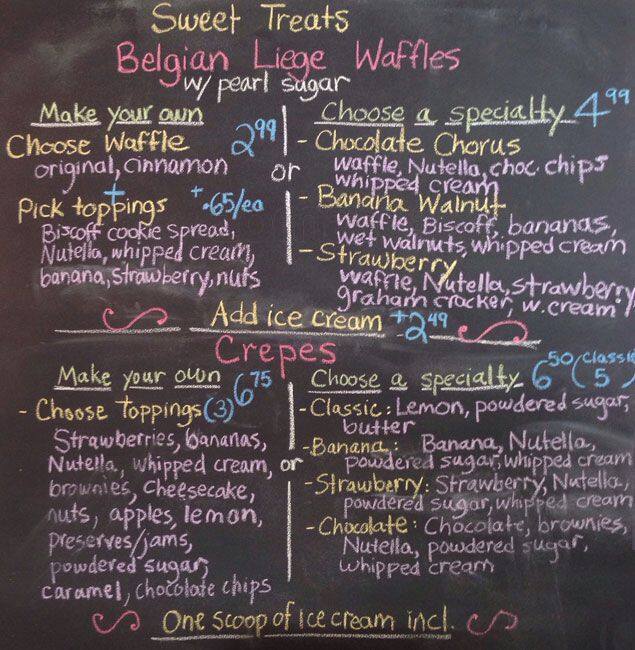 Sweet Treats
Belgian Liege Waffles
w/ pearl sugar
Make your own
Choose Waffle 2.99
original, cinnamon
+
Pick toppings +.65/ea
Biscoff cookie spread,
Nutella, whipped cream,
banana, strawberry, nuts
or
Choose a specialty 4.99
- Chocolate Chorus
waffle, Nutella, choc. chips
whipped cream
- Banana Walnut
waffle, Biscoff, bananas,
wet walnuts, whipped cream
- Strawberry
waffle, Nutella, strawberry,
graham cracker, w. cream
Add ice cream +2.49
Crepes
Make your own 6.75
- Choose Toppings (3)
Strawberries, bananas,
Nutella, whipped cream,
brownies, Cheesecake,
nuts, apples, lemon,
preserves/jams,
powdered sugar,
caramel, chocolate chips
or
Choose a specialty 6.50 (Classic 5)
- Classic: Lemon, powdered sugar,
butter
- Banana: Banana, Nutella,
powdered sugar, whipped cream
- Strawberry: Strawberry, Nutella,
powdered sugar, whipped cream
- Chocolate: Chocolate, brownies,
Nutella, powdered sugar,
whipped cream
One scoop of ice cream incl.